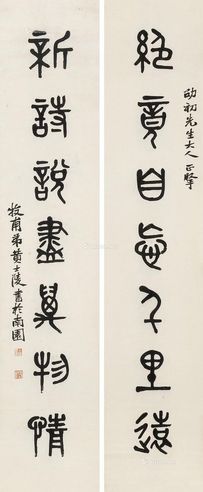 劭初先生大人正
絕竟自忘千里遠
新詩說盡萬物情
牧甫弟黃士陵書於南園